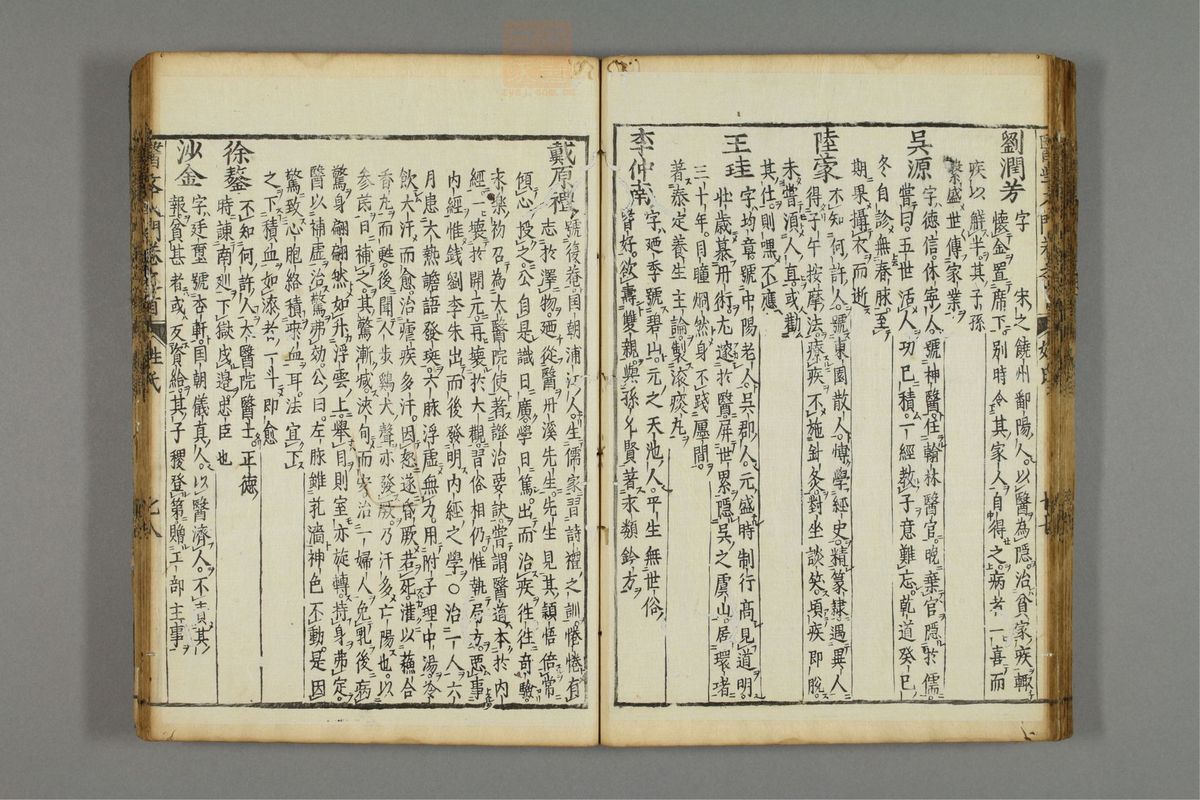 劉潤芳
字 宋之饒州鄱陽人以醫為隱治貧家疾輒
懷金置席下別時令其家人自得之病者一喜而
疾以 半其子孫
繁盛世傳家業
吳源
字德信休寧人號神醫仕翰林醫官晚棄官隱於儒
嘗曰五世活人功已積一經教子意難忘乾道癸巳
冬自診無春脉至
期果攝衣而逝
陸蒙
不知何許人號東園散人博學經史精篆隸遇異人
得子午按摩法療疾不施針灸對坐談笑頃疾即脫
未嘗須人直或勸
其仕則 不應
王珪
字均章號中陽老人吳郡人元盛時制行高見道明
壯歲慕丹術尤邃於醫屏世累隱吳之虞山居環堵
三十年目瞳烱然身不踐廛間
著泰定養生主論製滾痰丸
李仲南
字廼季號碧山元之天池人平生無世俗
皆好欲壽雙親與孫允賢著永類鈐方
戴原禮
號復菴国朝浦江人生儒家習詩禮之訓惓惓有
志於澤物廼從醫丹溪先生先生見其穎悟倍常
傾心授之公自是識日廣學日篤出而治疾往往奇驗
永樂初召為太醫院使著證治要訣嘗謂醫道本於內
經一壞於開元再壞於大觀習俗相仍惟執局方悪事
內經惟錢劉李朱出而後發明內經之學○治一人六
月患大熱譫語發斑六脉浮虛無力用附子理中湯冷
飲大汗而愈治瘧疾多汗因怒遂昏厥若死灌以蘇合
香丸而甦後聞人步鷄犬聲亦發厥乃汗多亡陽也以
參茋日補之其驚漸減浹旬而安治一婦人免乳後病
驚身翩翩然如升浮雲上舉目則室亦旋轉持身弗定
醫以補虛治驚弗効公曰左脉雖芤濇神色不動是因
驚致心胞絡積衆血耳法宜下
之下積血如漆者一斗即愈
徐鏊
不知何許人太醫院醫士正徳
時諫南廵下獄戍邉忠臣也
沙金
字廷璽號杏軒国朝儀真人以醫濟人不責其
報貧甚者或反資給其子稷登第贈工部主事
姓氏